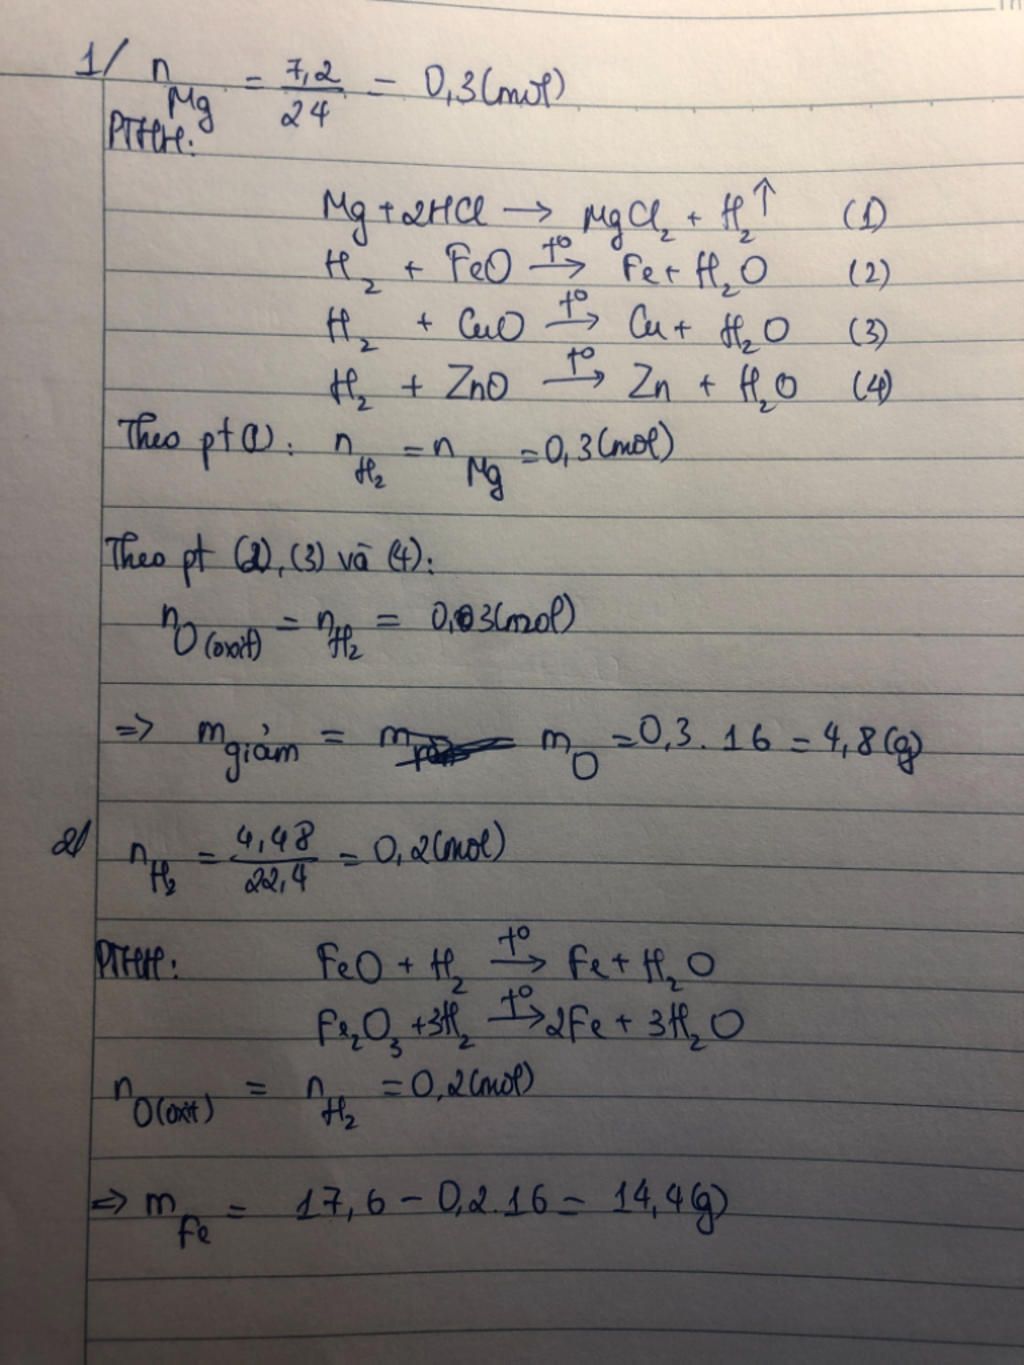 1/ n Mg = 7,2/24 = 0,3(mol)
PTHH:
Mg + 2HCl → MgCl₂ + H₂↑ (1)
H₂ + FeO t°→ Fe + H₂O (2)
H₂ + CuO t°→ Cu + H₂O (3)
H₂ + ZnO t°→ Zn + H₂O (4)
Theo pt (1): n H₂ = n Mg = 0,3(mol)
Theo pt (2), (3) và (4):
n O(oxit) = n H₂ = 0,03(mol)
=> m giảm = m O = 0,3. 16 = 4,8(g)
2/ n H₂ = 4,48/22,4 = 0,2(mol)
PTHH: FeO + H₂ t°→ Fe + H₂O
Fe₂O₃ + 3H₂ t°→ 2Fe + 3H₂O
n O(oxit) = n H₂ = 0,2(mol)
=> m Fe = 17,6 - 0,2.16 = 14,4(g)